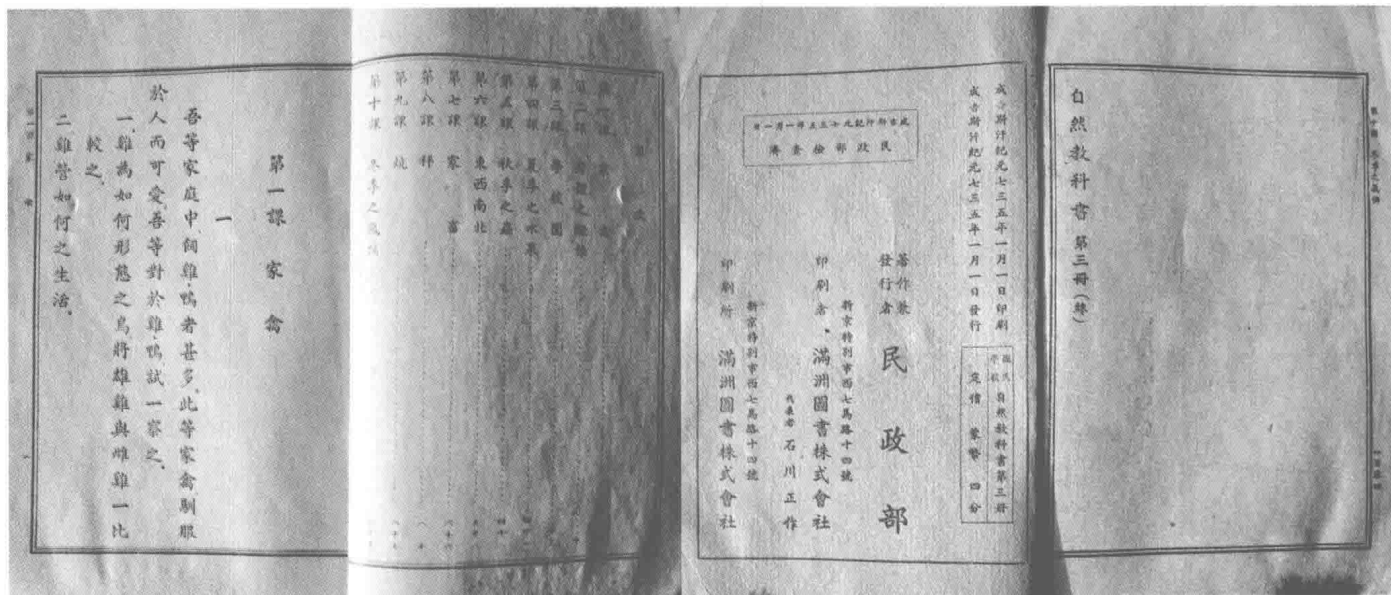 自然教科書 第三冊(終)
成吉斯汗紀元七三五年一月一日印刷
成吉斯汗紀元七三五年一月一日發行
國民學校 自然教科書第三冊
定價 蒙幣 四分
著作兼發行者 民政部
新京特別市西七馬路十四號
印刷者 滿洲圖書株式會社
代表者 石川正作
新京特別市西七馬路十四號
印刷所 滿洲圖書株式會社
成吉斯汗紀元七三五年一月一日
民政部檢查濟
第三課 學校園
第四課 夏季之水果
第五課 秋季之蟲
第六課 東西南北
第七課 家畜
第八課 秤
第九課
第十課 冬季之
第一課 家禽
一
吾等家庭中、飼雞、鴨者甚多、此等家禽、馴服
於人而可愛、吾等對於雞、鴨試一察之、
一、雞為如何形態之鳥將雄雞與雌雞一比
較之、
二、雞營如何之生活、